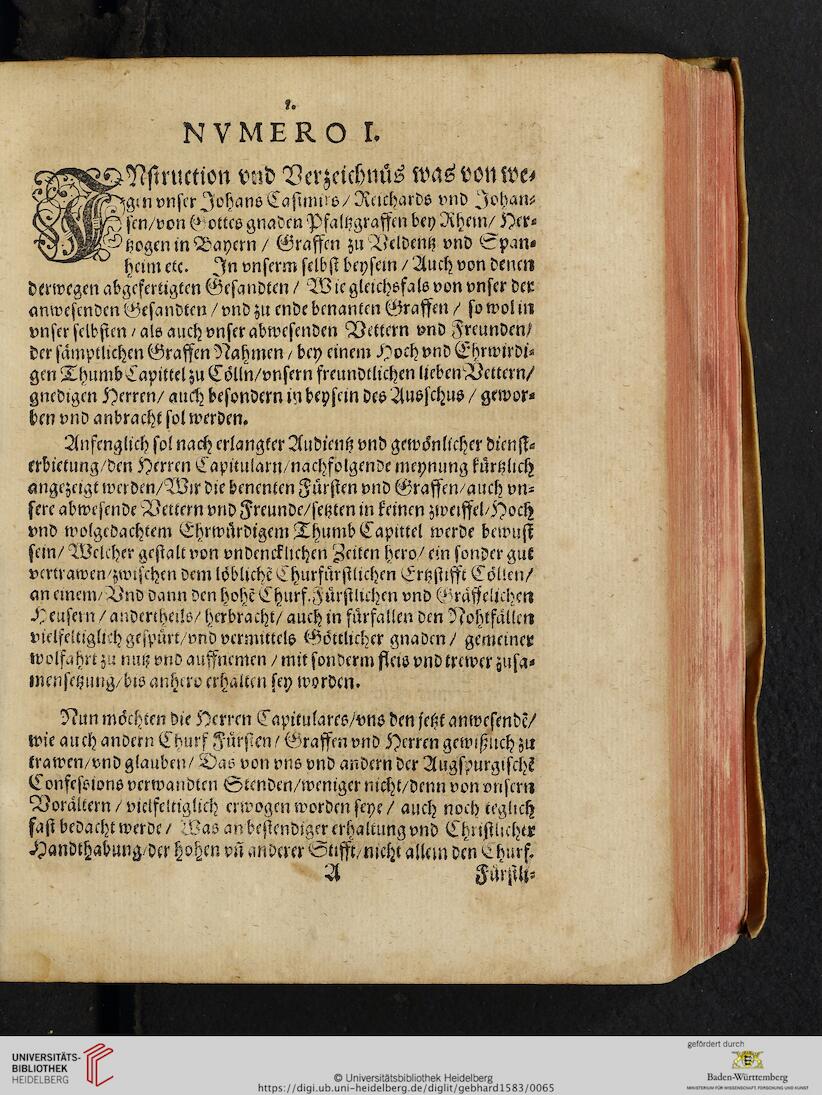 1.
NVMERO I.
INstruction vnd Verzeichnüs was von we-
gen vnser Johans Casimirs / Reichards vnd Johan-
sen/von Gottes gnaden Pfaltzgraffen bey Rhein/ Her-
tzogen in Bayern / Graffen zu Veldentz vnd Span-
heim etc. In vnserm selbst beysein / Auch von denen
derwegen abgefertigten Gesandten / Wie gleichsfals von vnser der
anwesenden Gesandten / vnd zu ende benanten Graffen / so wol in
vnser selbsten / als auch vnser abwesenden Vettern vnd Freunden/
der sämptlichen Graffen Nahmen / bey einem Hoch vnd Ehrwirdi-
gen Thumb Capittel zu Cölln/vnsern freundtlichen lieben Vettern/
gnedigen Herren/ auch besondern in beysein des Ausschus / gewor-
ben vnd anbracht sol werden.
Anfenglich sol nach erlangter Audientz vnd gewönlicher dienst-
erbietung/den Herren Capitularn/nachfolgende meynung kürtzlich
angezeigt werden/Wir die benenten Fürsten vnd Graffen/auch vn-
sere abwesende Vettern vnd Freunde/setzten in keinen zweiffel/Hoch
vnd wolgedachtem Ehrwürdigem Thumb Capittel werde bewust
sein/ Welcher gestalt von vndencklichen Zeiten hero/ ein sonder gut
vertrawen/zwischen dem löblichē Churfürstlichen Ertzstifft Cöllen/
an einem/Vnd dann den hohē Churf.Fürstlichen vnd Gräffelichen
Heusern / andertheils/ herbracht/ auch in fürfallen den Nohtfällen
vielfeltiglich gespürt/vnd vermittels Göttlicher gnaden / gemeiner
wolfahrt zu nutz vnd auffnemen / mit sonderm fleis vnd trewer zusa-
mensetzung/bis anhero erhalten sey worden.
Nun möchten die Herren Capitulares/vns den jetzt anwesendē/
wie auch andern Churf Fürsten / Graffen vnd Herren gewißlich zu
trawen/vnd glauben/ Das von vns vnd andern der Augspurgischē
Confessions verwandten Stenden/weniger nicht/denn von vnsern
Vorältern / vielfeltiglich erwogen worden seye / auch noch teglich
fast bedacht werde / Was an bestendiger erhaltung vnd Christlicher
Handthabung/der hohen vñ anderer Stifft/nicht allein den Churf.
A Fürstli-
UNIVERSITÄTS-
BIBLIOTHEK
HEIDELBERG
© Universitätsbibliothek Heidelberg
https://digi.ub.uni-heidelberg.de/diglit/gebhard1583/0065
gefördert durch
Baden-Württemberg
MINISTERIUM FÜR WISSENSCHAFT, FORSCHUNG UND KUNST